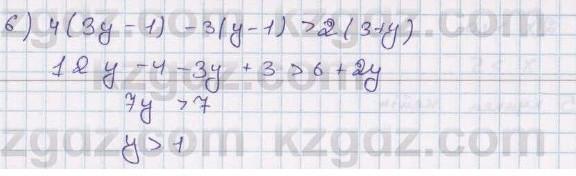 6) 4(3y-1) -3(y-1) >2(3+y)
12y -4 -3y +3 >6 +2y
7y >7
y>1
kzgdz.com kzgdz.com